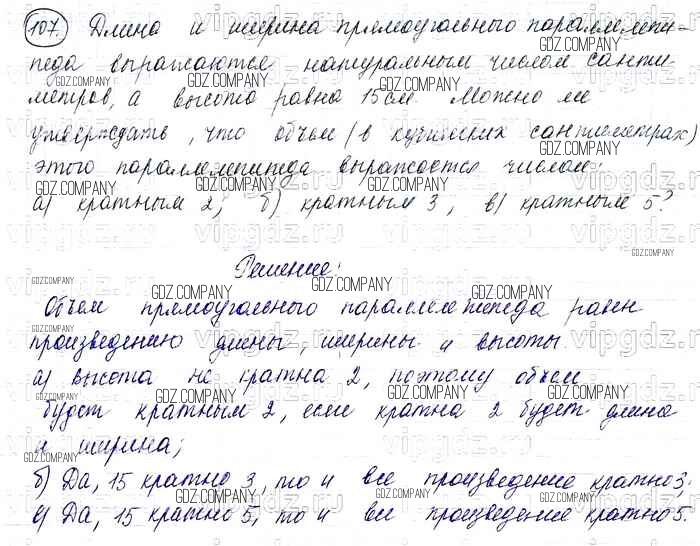 107. Длина и ширина прямоугольного параллелепи-
педа выражаются натуральным числом санти-
метров, а высота равна 15 см. Можно ли
утверждать, что объем (в кубических сантиметрах)
этого параллелепипеда выражается числом:
а) кратным 2; б) кратным 3, в) кратным 5?
Решение:
Объем прямоугольного параллелепипеда равен
произведению длины, ширины и высоты.
а) высота не кратна 2, поэтому объем
будет кратным 2, если кратна 2 будет длина
и ширина;
б) Да, 15 кратно 3, то и все произведение кратно 3;
в) Да, 15 кратно 5, то и все произведение кратно 5.